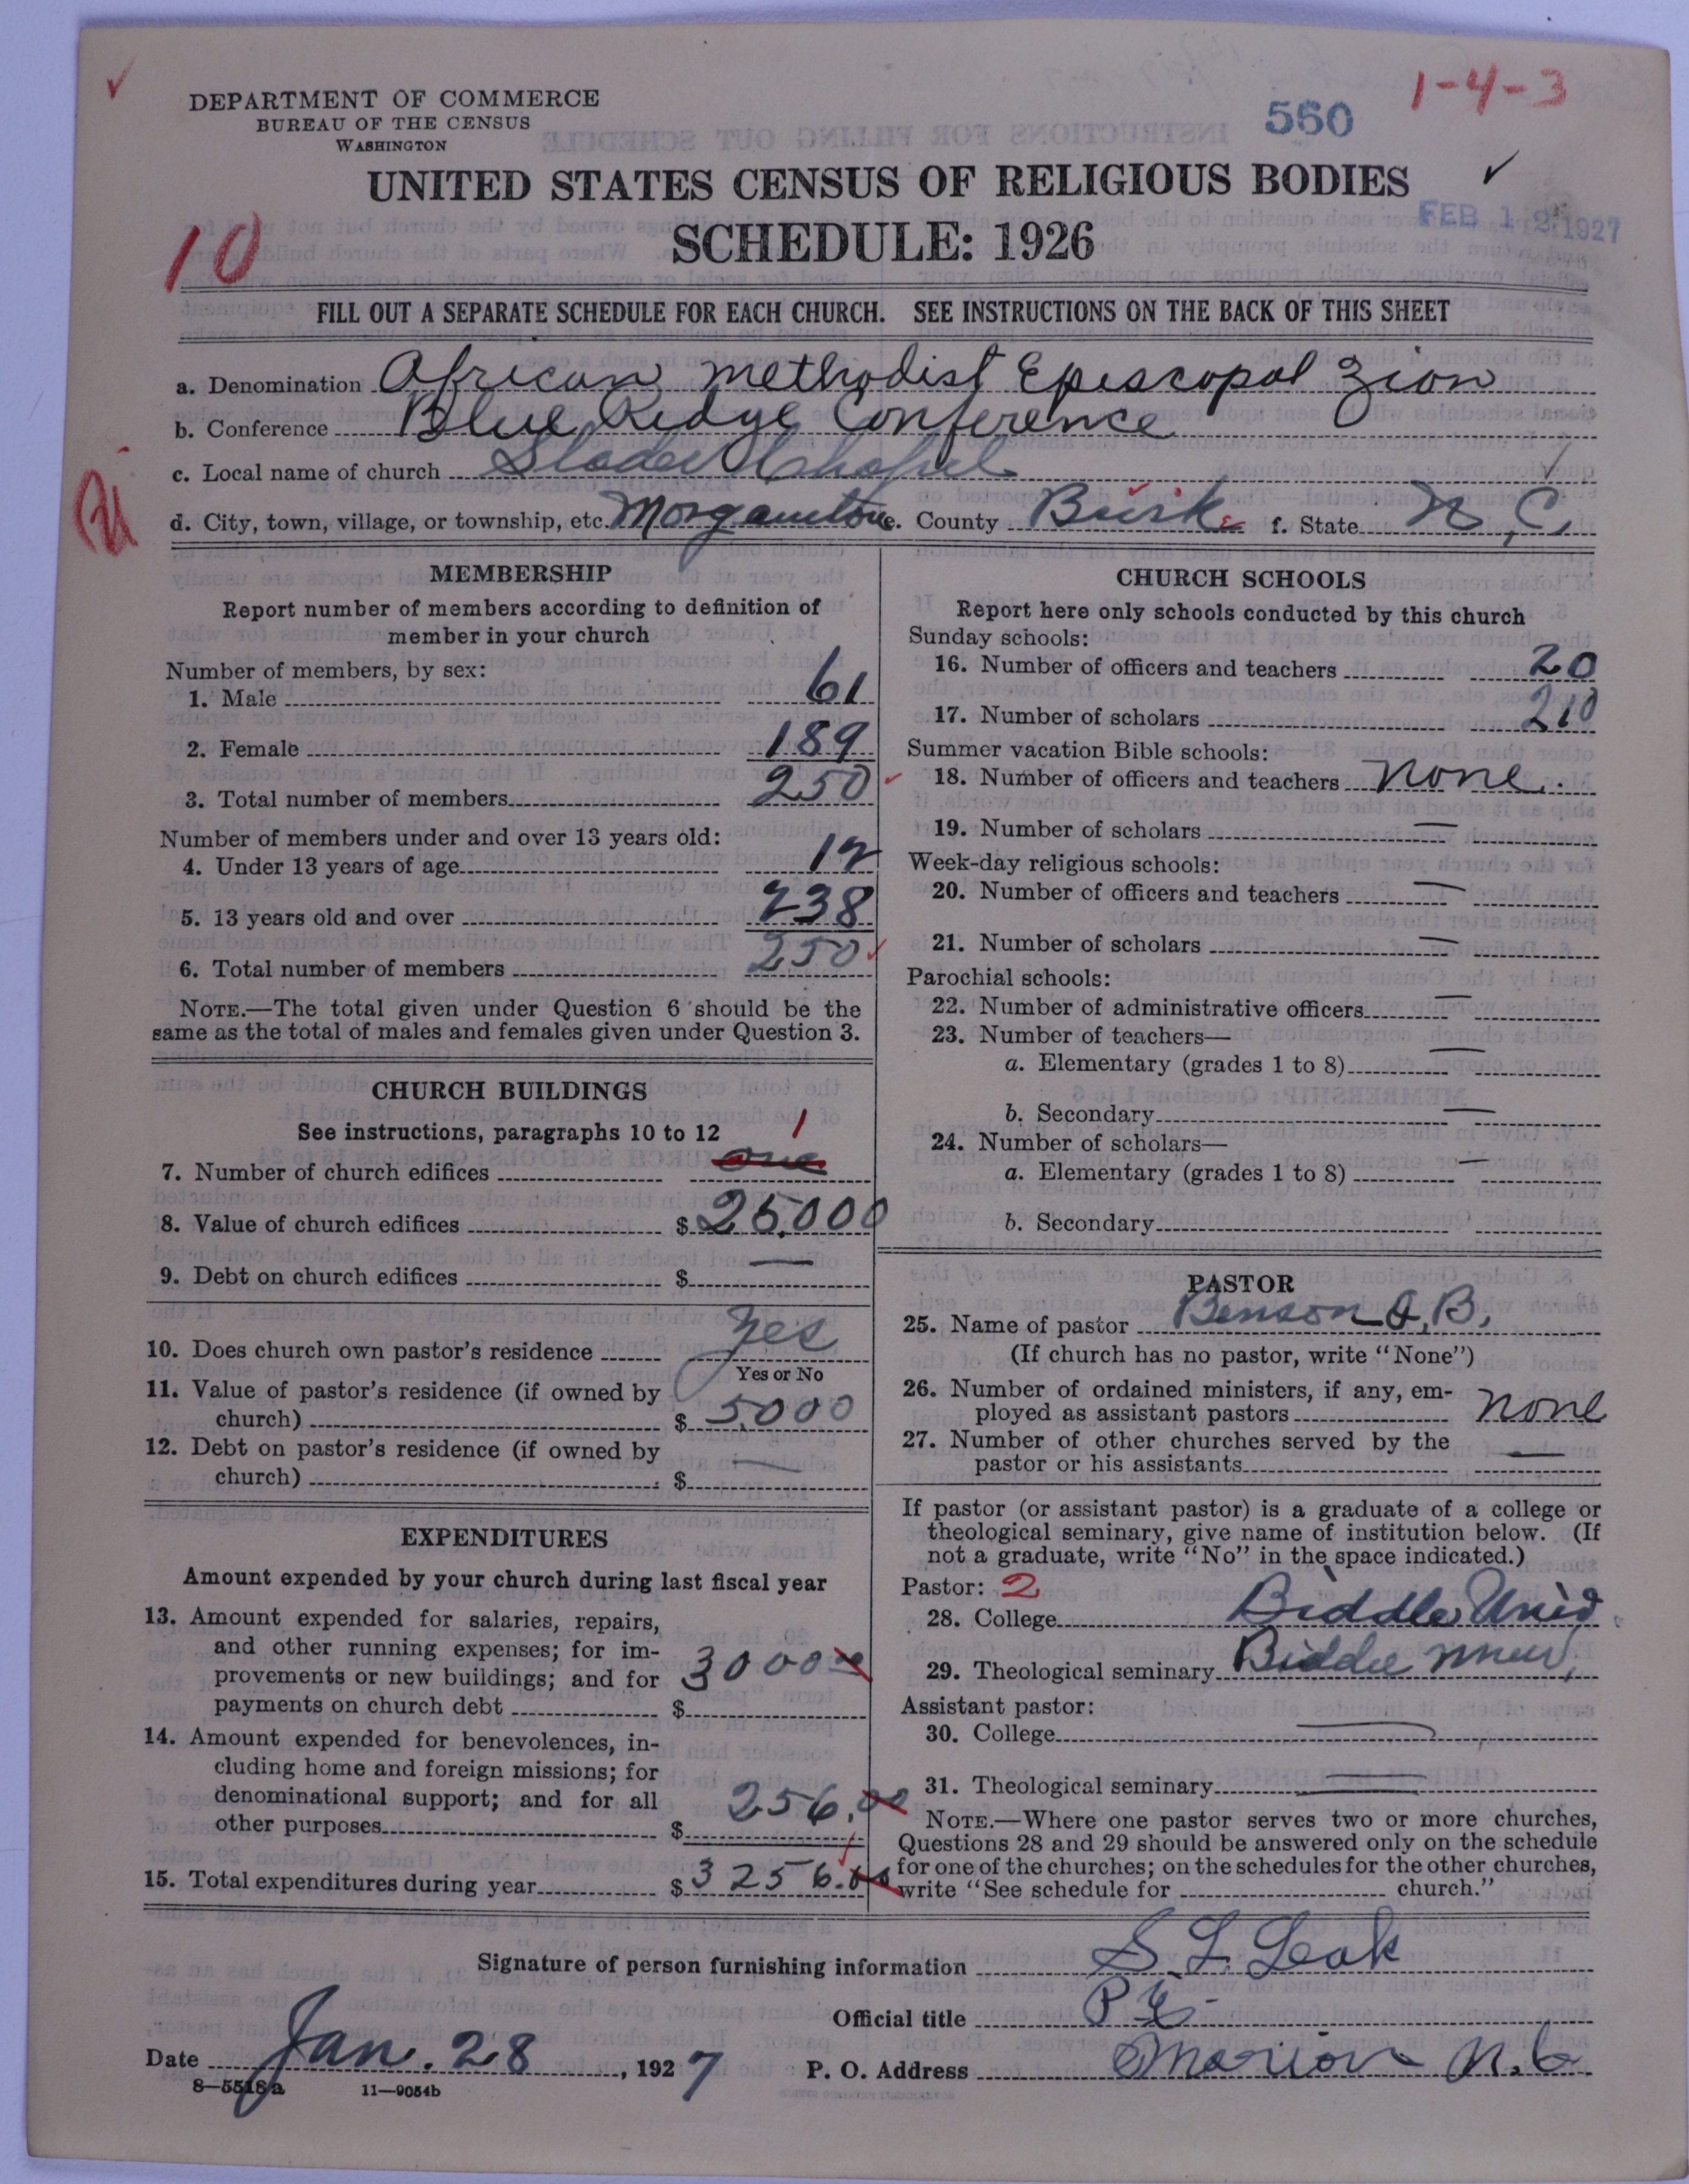 1-4-3
560
DEPARTMENT OF COMMERCE
BUREAU OF THE CENSUS
WASHINGTON
UNITED STATES CENSUS OF RELIGIOUS BODIES
FEB 12 1927
10
SCHEDULE: 1926
FILL OUT A SEPARATE SCHEDULE FOR EACH CHURCH. SEE INSTRUCTIONS ON THE BACK OF THIS SHEET
a. Denomination African Methodist Episcopal Zion
b. Conference Blue Ridge Conference
c. Local name of church Slades Chapel
d. City, town, village, or township, etc. Morganton e. County Burke f. State N.C.
MEMBERSHIP
Report number of members according to definition of
member in your church
Number of members, by sex:
1. Male 61
2. Female 189
3. Total number of members 250
Number of members under and over 13 years old:
4. Under 13 years of age 12
5. 13 years old and over 238
6. Total number of members 250
NOTE.—The total given under Question 6 should be the
same as the total of males and females given under Question 3.
CHURCH BUILDINGS
See instructions, paragraphs 10 to 12
1
7. Number of church edifices one
8. Value of church edifices $ 25,000
9. Debt on church edifices $ —
10. Does church own pastor's residence Yes
Yes or No
11. Value of pastor's residence (if owned by
church) $ 5000
12. Debt on pastor's residence (if owned by
church) $ —
EXPENDITURES
Amount expended by your church during last fiscal year
13. Amount expended for salaries, repairs,
and other running expenses; for im-
provements or new buildings; and for
payments on church debt $ 3000 00
14. Amount expended for benevolences, in-
cluding home and foreign missions; for
denominational support; and for all
other purposes $ 256.00
15. Total expenditures during year $ 3256.00
CHURCH SCHOOLS
Report here only schools conducted by this church
Sunday schools:
16. Number of officers and teachers 20
17. Number of scholars 210
Summer vacation Bible schools:
18. Number of officers and teachers none
19. Number of scholars —
Week-day religious schools:
20. Number of officers and teachers —
21. Number of scholars —
Parochial schools:
22. Number of administrative officers —
23. Number of teachers—
a. Elementary (grades 1 to 8) —
b. Secondary —
24. Number of scholars—
a. Elementary (grades 1 to 8) —
b. Secondary
PASTOR
25. Name of pastor Benson J, B,
(If church has no pastor, write "None")
26. Number of ordained ministers, if any, em-
ployed as assistant pastors none
27. Number of other churches served by the
pastor or his assistants —
If pastor (or assistant pastor) is a graduate of a college or
theological seminary, give name of institution below. (If
not a graduate, write "No" in the space indicated.)
Pastor: 2
28. College Biddle Univ.
29. Theological seminary Biddle Univ,
Assistant pastor:
30. College —
31. Theological seminary —
NOTE.—Where one pastor serves two or more churches,
Questions 28 and 29 should be answered only on the schedule
for one of the churches; on the schedules for the other churches,
write "See schedule for church."
Signature of person furnishing information S. L. Leak
Official title P E
Date Jan. 28, 1927 P. O. Address Marion N.C.
8—5518a 11—9054b